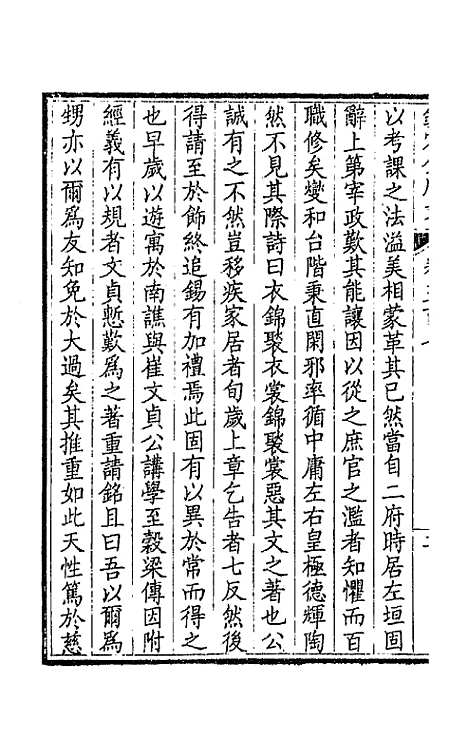 以考課之法溢美相蒙革其已然當自二府時居左垣固
辭上第宰政歎其能讓因以從之庶官之濫者知懼而百
職修矣燮和台階秉直閑邪率循中庸左右皇極德輝陶
然不見其際詩曰衣錦褧衣裳錦褧裳惡其文之著也公
誠有之不然豈移疾家居者旬歲上章乞告者七反然後
得請至於飾終追錫有加禮焉此固有以異於常而得之
也早歲以遊寓於南譙與崔文貞公講學至穀梁傳因附
經義有以規者文貞慙歎爲之著重請銘且曰吾以爾爲
甥亦以爾爲友知免於大過矣其推重如此天性篤於慈